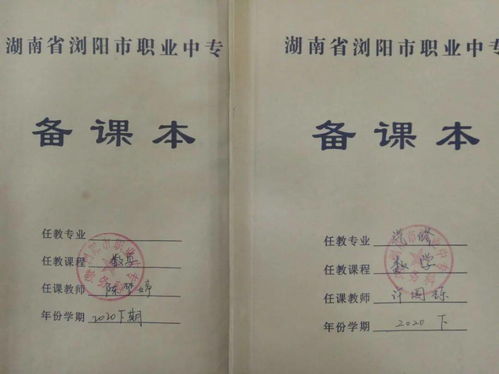 湖南省浏阳市职业中专
备课本
任教专业
任教课程 数学
任课教师 陈
年份学期 2020下期
湖南省浏阳市职业中专
备课本
任教专业
任教课程 数学
任课教师 许国栋
年份学期 2020下